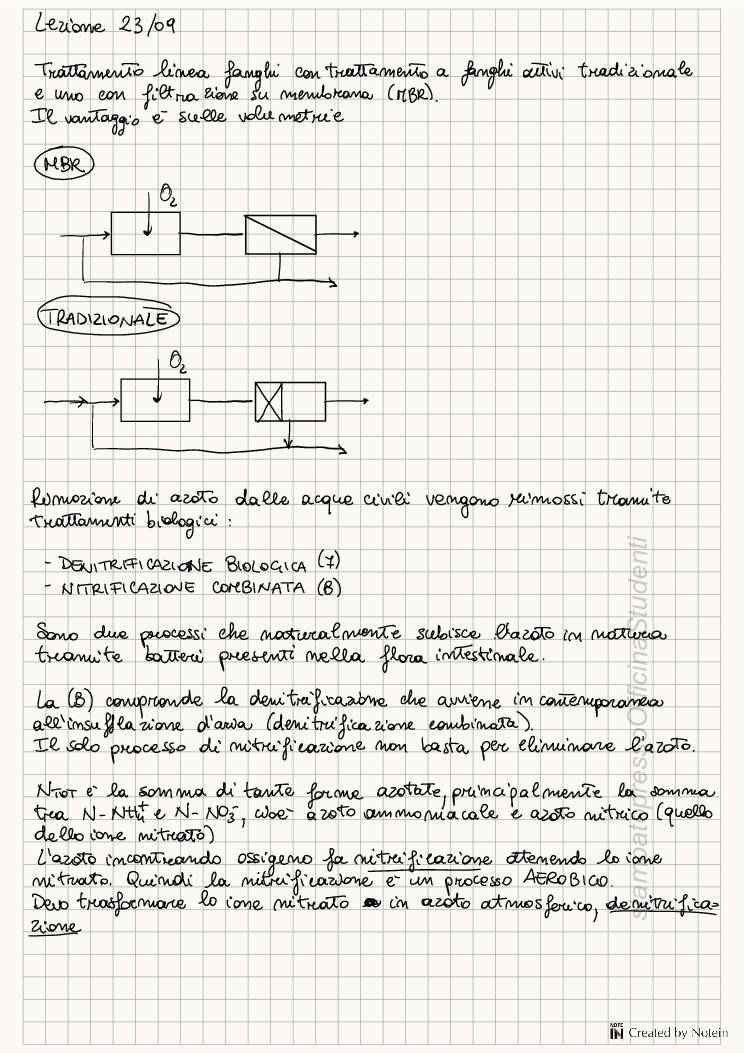 Lezione 23/09
Trattamento linea fanghi con trattamento a fanghi attivi tradizionale
e uno con filtrazione su membrana (MBR).
Il vantaggio è sulle volumetrie
MBR
O2
TRADIZIONALE
O2
Rimozione di azoto dalle acque civili vengono rimossi tramite
trattamenti biologici :
- DENITRIFICAZIONE BIOLOGICA (7)
- NITRIFICAZIONE COMBINATA (8)
Sono due processi che naturalmente subisce l'azoto in natura
tramite batteri presenti nella flora intestinale.
La (8) comprende la denitrificazione che avviene in contemporanea
all'insufflazione d'aria (denitrificazione combinata).
Il solo processo di nitrificazione non basta per eliminare l'azoto.
NTOT è la somma di tante forme azotate, principalmente la somma
tra N-NH4+ e N-NO3-, cioè azoto ammoniacale e azoto nitrico (quello
dello ione nitrato)
L'azoto incontrando ossigeno fa nitrificazione ottenendo lo ione
nitrato. Quindi la nitrificazione è un processo AEROBICO.
Devo trasformare lo ione nitrato in azoto atmosferico, denitrifica-
zione
stampatopressoOfficinaStudenti
NOTE IN Created by Notein